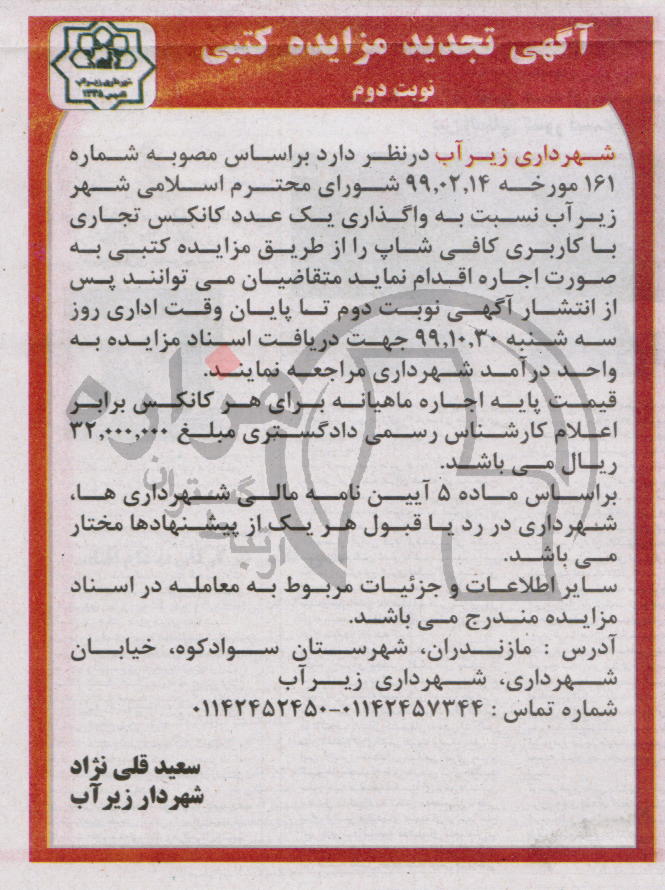 آگهی تجدید مزایده کتبی
نوبت دوم
شهرداری زیرآب
تاسیس ۱۳۳۵
شهرداری زیرآب درنظر دارد براساس مصوبه شماره
۱۶۱ مورخه ۹۹,۰۲,۱۴ شورای محترم اسلامی شهر
زیرآب نسبت به واگذاری یک عدد کانکس تجاری
با کاربری کافی شاپ را از طریق مزایده کتبی به
صورت اجاره اقدام نماید متقاضیان می توانند پس
از انتشار آگهی نوبت دوم تا پایان وقت اداری روز
سه شنبه ۹۹,۱۰,۳۰ جهت دریافت اسناد مزایده به
واحد درآمد شهرداری مراجعه نمایند.
قیمت پایه اجاره ماهیانه برای هر کانکس برابر
اعلام کارشناس رسمی دادگستری مبلغ ۳۲,۰۰۰,۰۰۰
ریال می باشد.
براساس ماده ۵ آیین نامه مالی شهرداری ها،
شهرداری در رد یا قبول هر یک از پیشنهادها مختار
می باشد.
سایر اطلاعات و جزئیات مربوط به معامله در اسناد
مزایده مندرج می باشد.
آدرس : مازندران، شهرستان سوادکوه، خیابان
شهرداری، شهرداری زیرآب
شماره تماس : ۰۱۱۴۲۴۵۷۳۴۴-۰۱۱۴۲۴۵۲۴۵۰
سعید قلی نژاد
شهردار زیرآب
هزاره